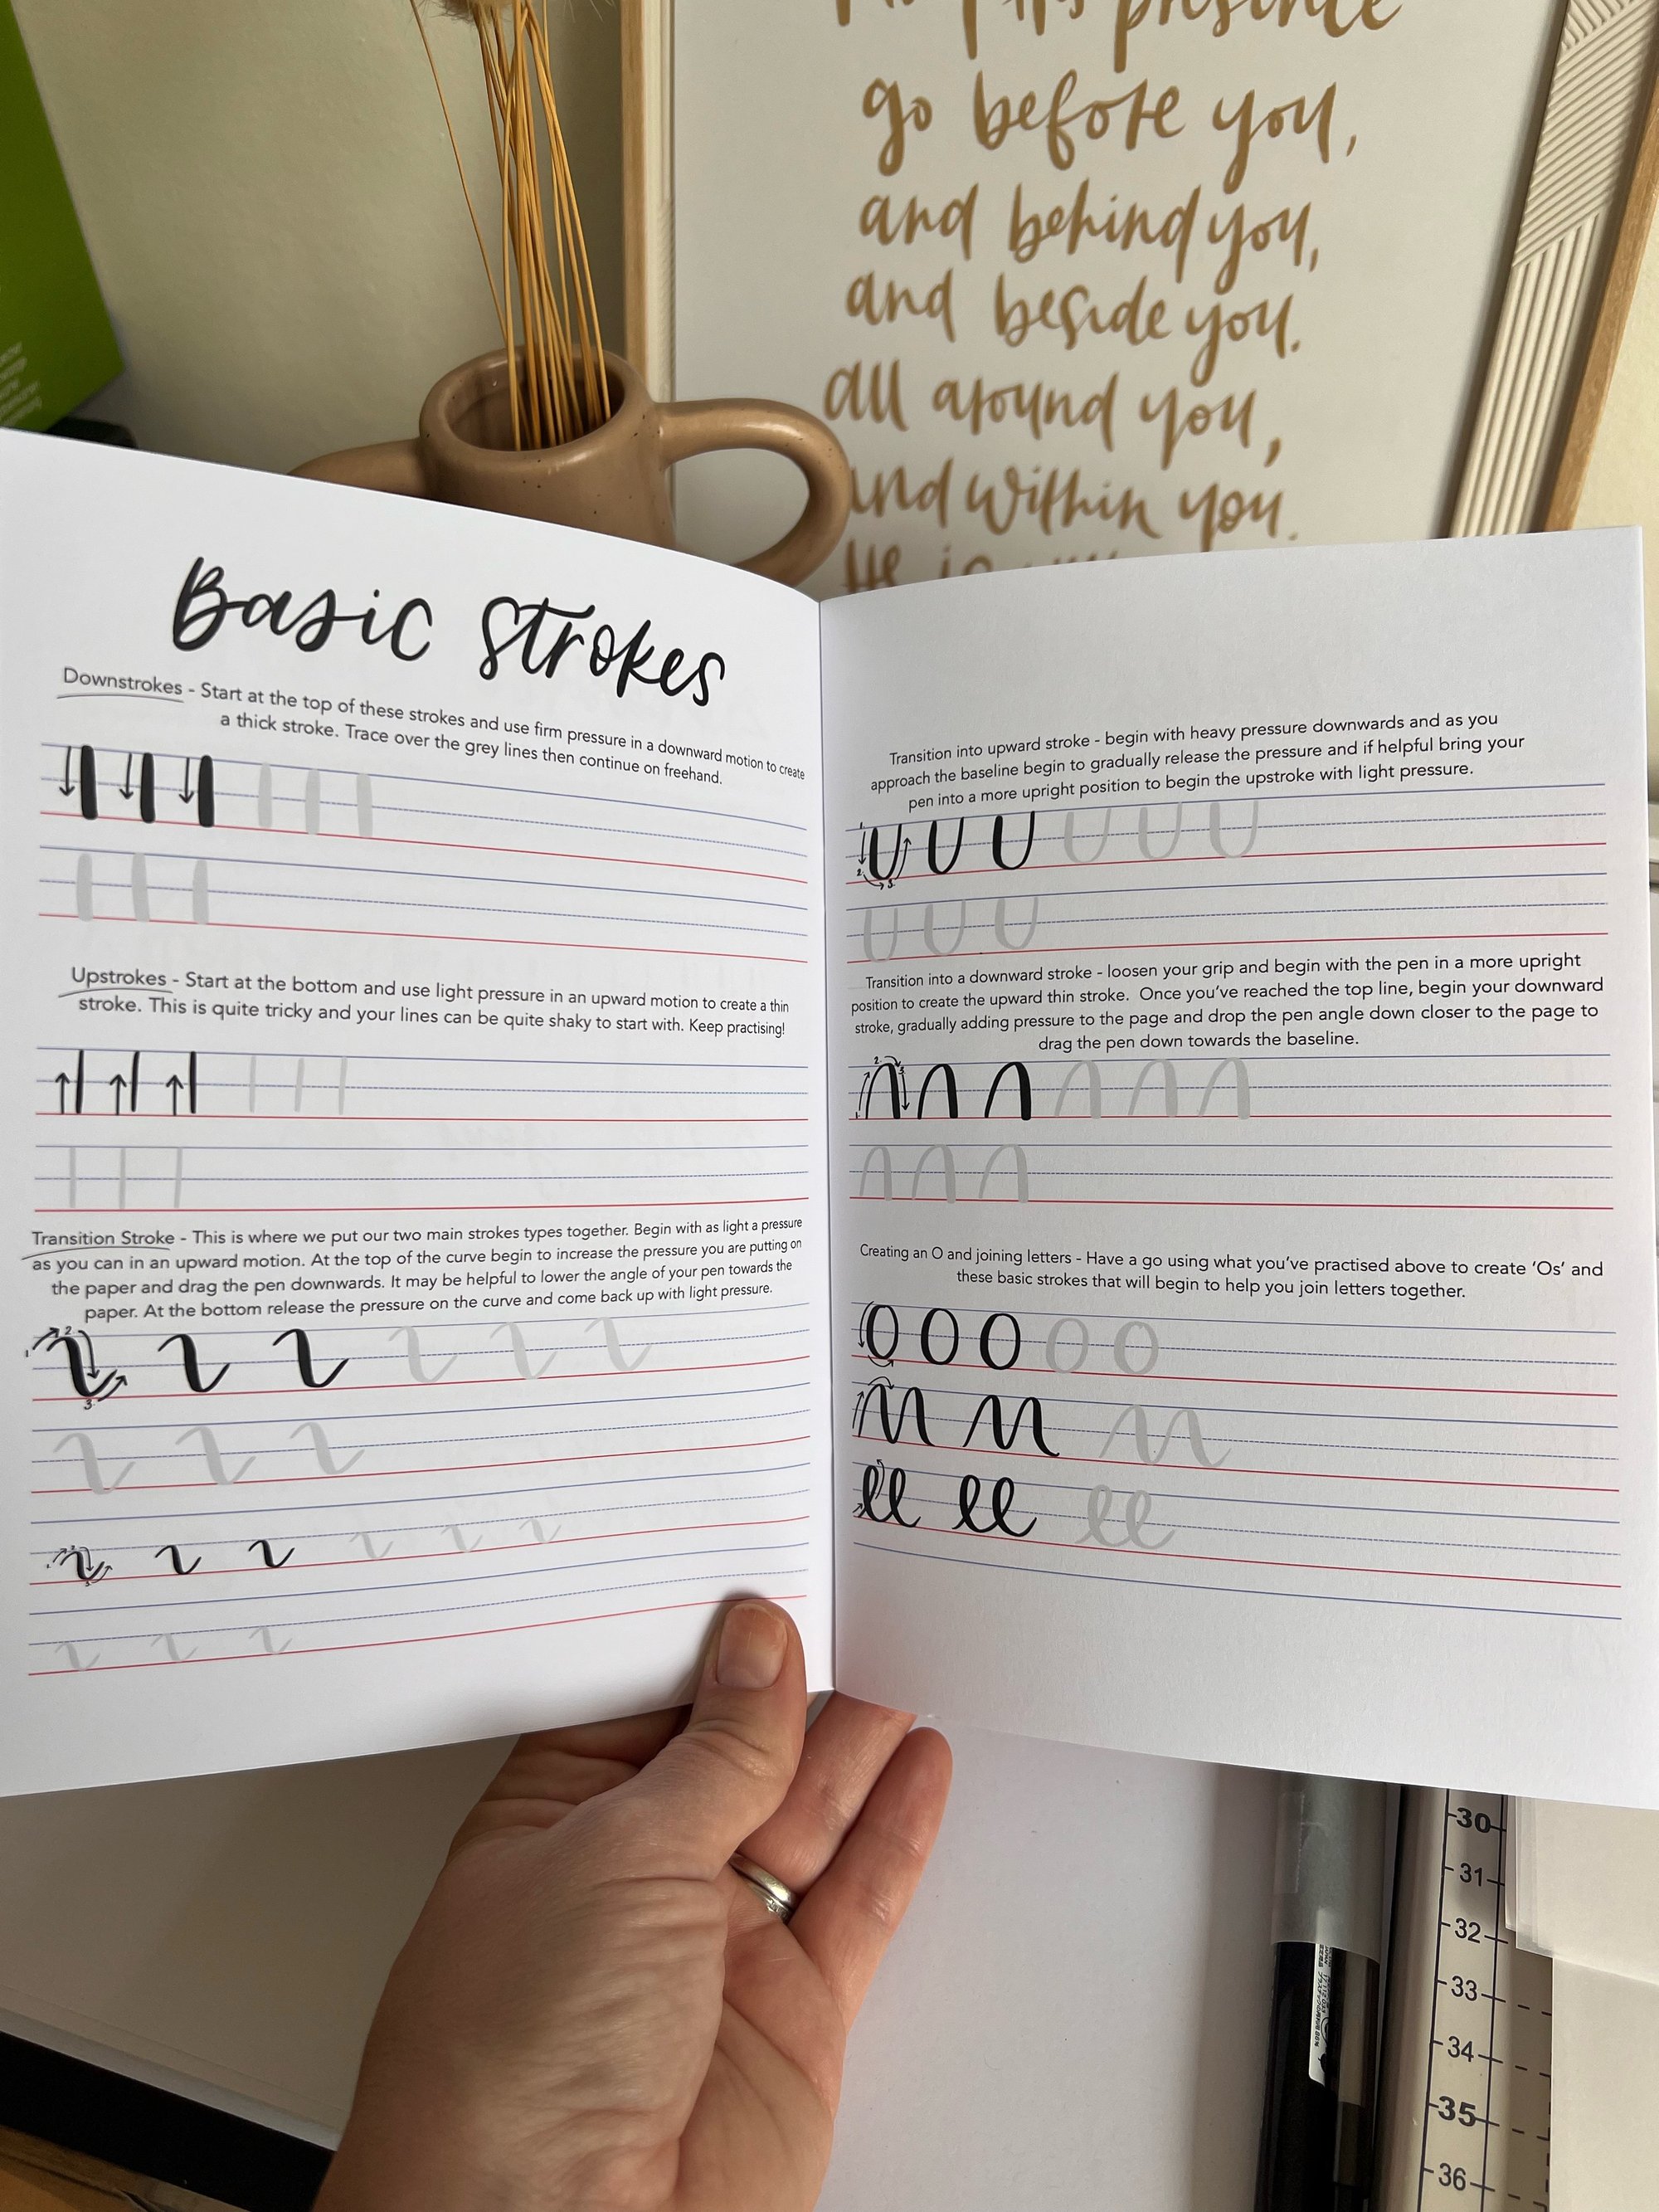 presence
go before you,
and behind you,
and beside you.
all around you,
and within you.
He is
Basic Strokes
Downstrokes - Start at the top of these strokes and use firm pressure in a downward motion to create
a thick stroke. Trace over the grey lines then continue on freehand.
Upstrokes - Start at the bottom and use light pressure in an upward motion to create a thin
stroke. This is quite tricky and your lines can be quite shaky to start with. Keep practising!
Transition Stroke - This is where we put our two main strokes types together. Begin with as light a pressure
as you can in an upward motion. At the top of the curve begin to increase the pressure you are putting on
the paper and drag the pen downwards. It may be helpful to lower the angle of your pen towards the
paper. At the bottom release the pressure on the curve and come back up with light pressure.
1 2 3.
Transition into upward stroke - begin with heavy pressure downwards and as you
approach the baseline begin to gradually release the pressure and if helpful bring your
pen into a more upright position to begin the upstroke with light pressure.
1. 2. 3.
Transition into a downward stroke - loosen your grip and begin with the pen in a more upright
position to create the upward thin stroke. Once you've reached the top line, begin your downward
stroke, gradually adding pressure to the page and drop the pen angle down closer to the page to
drag the pen down towards the baseline.
1. 2. 3.
Creating an O and joining letters - Have a go using what you've practised above to create 'Os' and
these basic strokes that will begin to help you join letters together.
O O O O O
ll ll ll
30
31
32
33
34
35
36